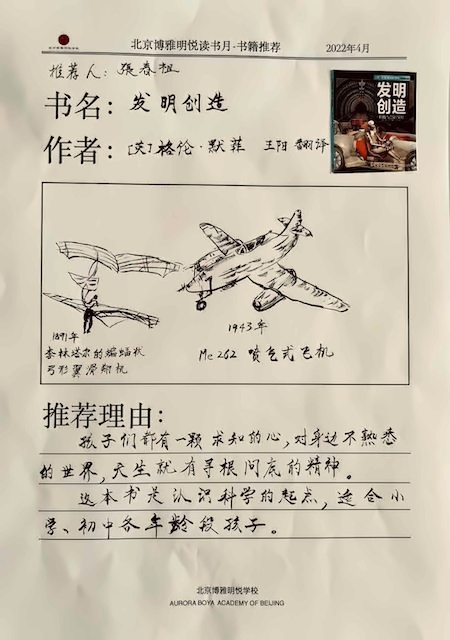 北京博雅明悦读书月·书籍推荐
2022年4月
推荐人：張春祖
书名：发明创造
作者：[英]格伦·默菲 王阳 翻译
发明
创造
1891年
李林塔尔的蝙蝠状
弓形翼滑翔机
1943年
Me 262 喷气式飞机
推荐理由：
孩子们都有一颗求知的心，对身边不熟悉
的世界，天生就有寻根问底的精神。
这本书是认识科学的起点，适合小
学、初中各年龄段孩子。
北京博雅明悦学校
AURORA BOYA ACADEMY OF BEIJING